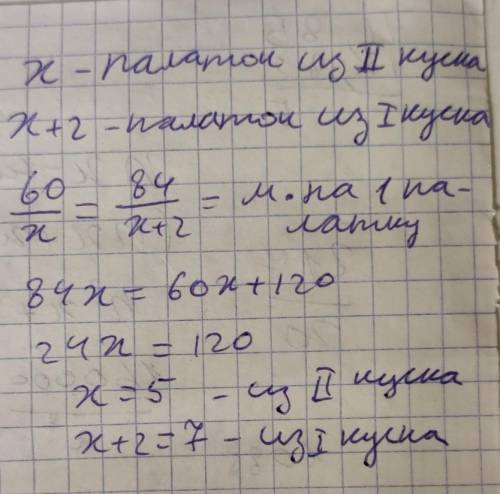 х - палаток из II куска
х+2 - палаток из I куска
60/х = 84/(х+2) = м. на 1 па-
латку
84х = 60х+120
24х = 120
х = 5 - из II куска
х+2=7 - из I куска